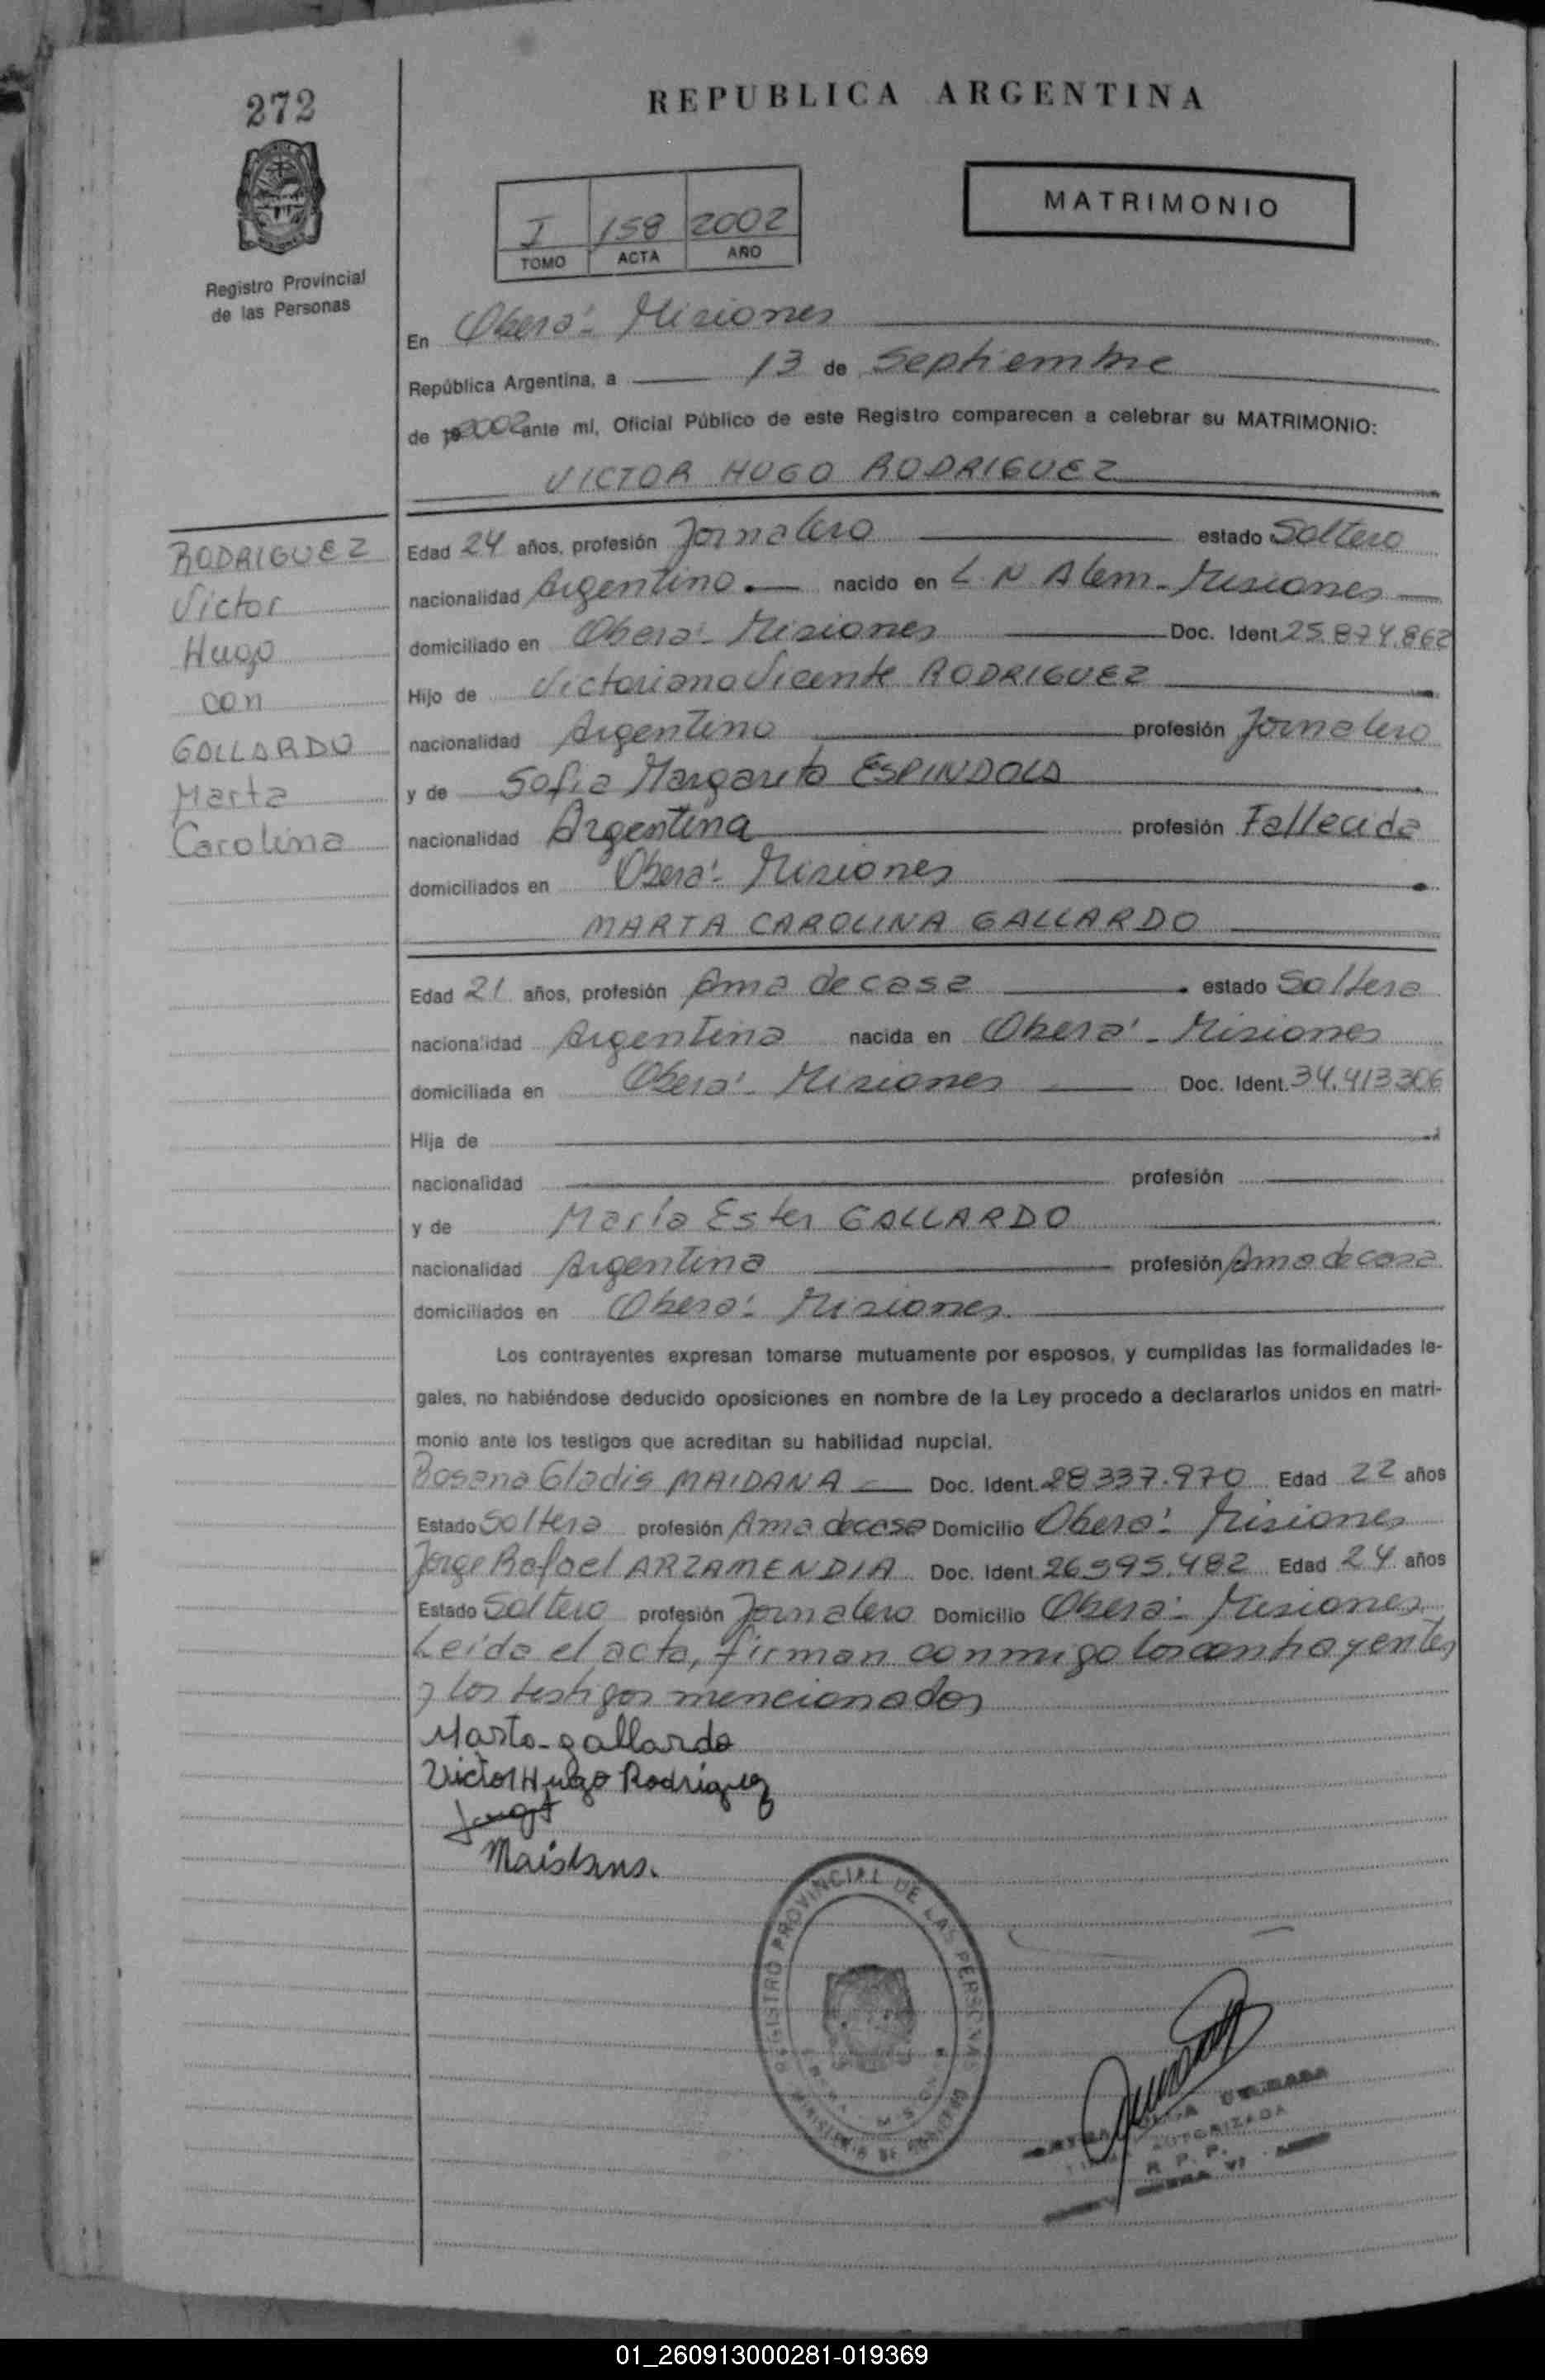 272
REPUBLICA ARGENTINA
MATRIMONIO
I 158 2002
TOMO ACTA AÑO
Registro Provincial
de las Personas
En Oberá - Misiones
República Argentina, a 13 de Septiembre
de 2002 ante mí, Oficial Público de este Registro comparecen a celebrar su MATRIMONIO:
VICTOR HUGO RODRIGUEZ
RODRIGUEZ
Victor
Hugo
con
GALLARDO
Marta
Carolina
Edad 24 años, profesión Jornalero estado Soltero
nacionalidad Argentino nacido en L. N Alem - Misiones
domiciliado en Oberá - Misiones Doc. Ident. 25.874.862
Hijo de Victoriano Vicente RODRIGUEZ
nacionalidad Argentino profesión Jornalero
y de Sofia Margarita ESPINDOLA
nacionalidad Argentina profesión Fallecida
domiciliados en Oberá - Misiones
MARTA CAROLINA GALLARDO
Edad 21 años, profesión Ama de casa estado Soltera
nacionalidad Argentina nacida en Oberá - Misiones
domiciliada en Oberá - Misiones Doc. Ident. 34.413.306
Hija de
nacionalidad profesión
y de María Ester GALLARDO
nacionalidad Argentina profesión Ama de casa
domiciliados en Oberá - Misiones.
Los contrayentes expresan tomarse mutuamente por esposos, y cumplidas las formalidades le-
gales, no habiéndose deducido oposiciones en nombre de la Ley procedo a declararlos unidos en matri-
monio ante los testigos que acreditan su habilidad nupcial.
Rosana Gladis MAIDANA Doc. Ident. 28.337.970 Edad 22 años
Estado Soltera profesión Ama de casa Domicilio Oberá - Misiones
Jorge Rafael ARZAMENDIA Doc. Ident. 26.595.482 Edad 24 años
Estado Soltero profesión Jornalero Domicilio Oberá - Misiones
Leída el acta, firman conmigo los contrayentes
y los testigos mencionados
Marta - gallardo
Victor Hugo Rodriguez
Maidana.
REGISTRO PROVINCIAL DE LAS PERSONAS
MINISTERIO DE GOBIERNO
AUTORIZADA
R. P. P.
01_260913000281-019369